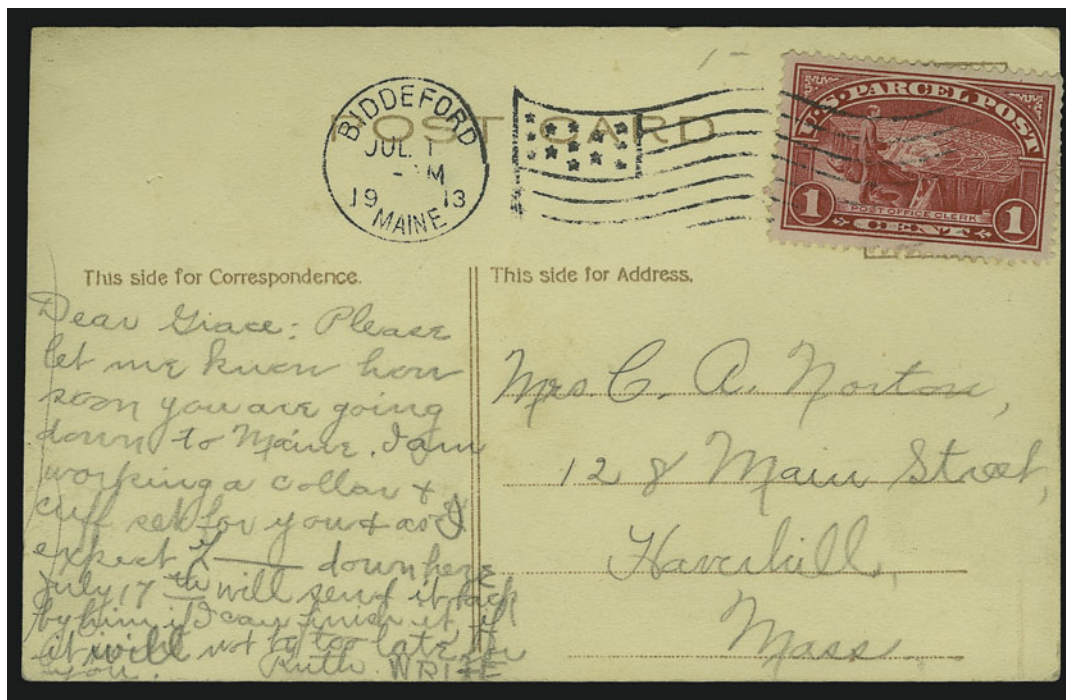 POST CARD
BIDDEFORD
JUL 1
M
19 13
MAINE
U.S. PARCEL POST
POST OFFICE CLERK
1 CENT 1
This side for Correspondence.
Dear Grace: Please
let me know how
soon you are going
down to Maine. I am
working a collar +
cuff set for you + as I
expect L—— down here
July 17th will send it back
by him if I can finish it, if
it will not be too late for
you. Ruth WRITE
This side for Address.
Mrs C. A. Norton,
128 Main Street,
Haverhill,
Mass.